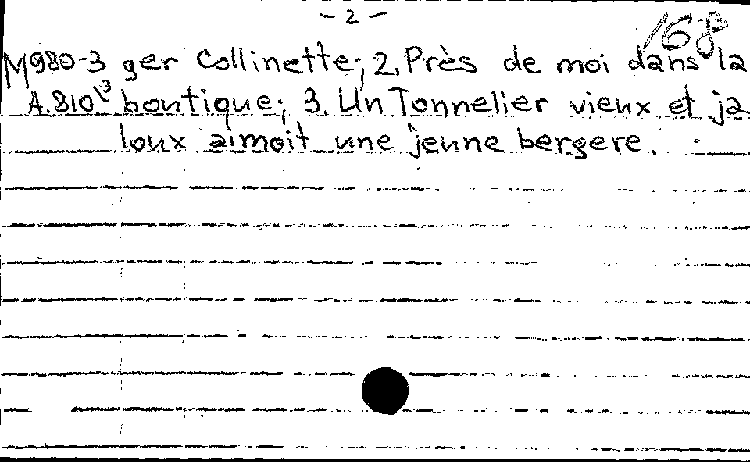 - 2 -
168
M980-3 ger Collinette; 2. Près de moi dans la
A.810\3 boutique; 3. Un Tonnelier vieux et ja
loux aimoit une jeune bergere.